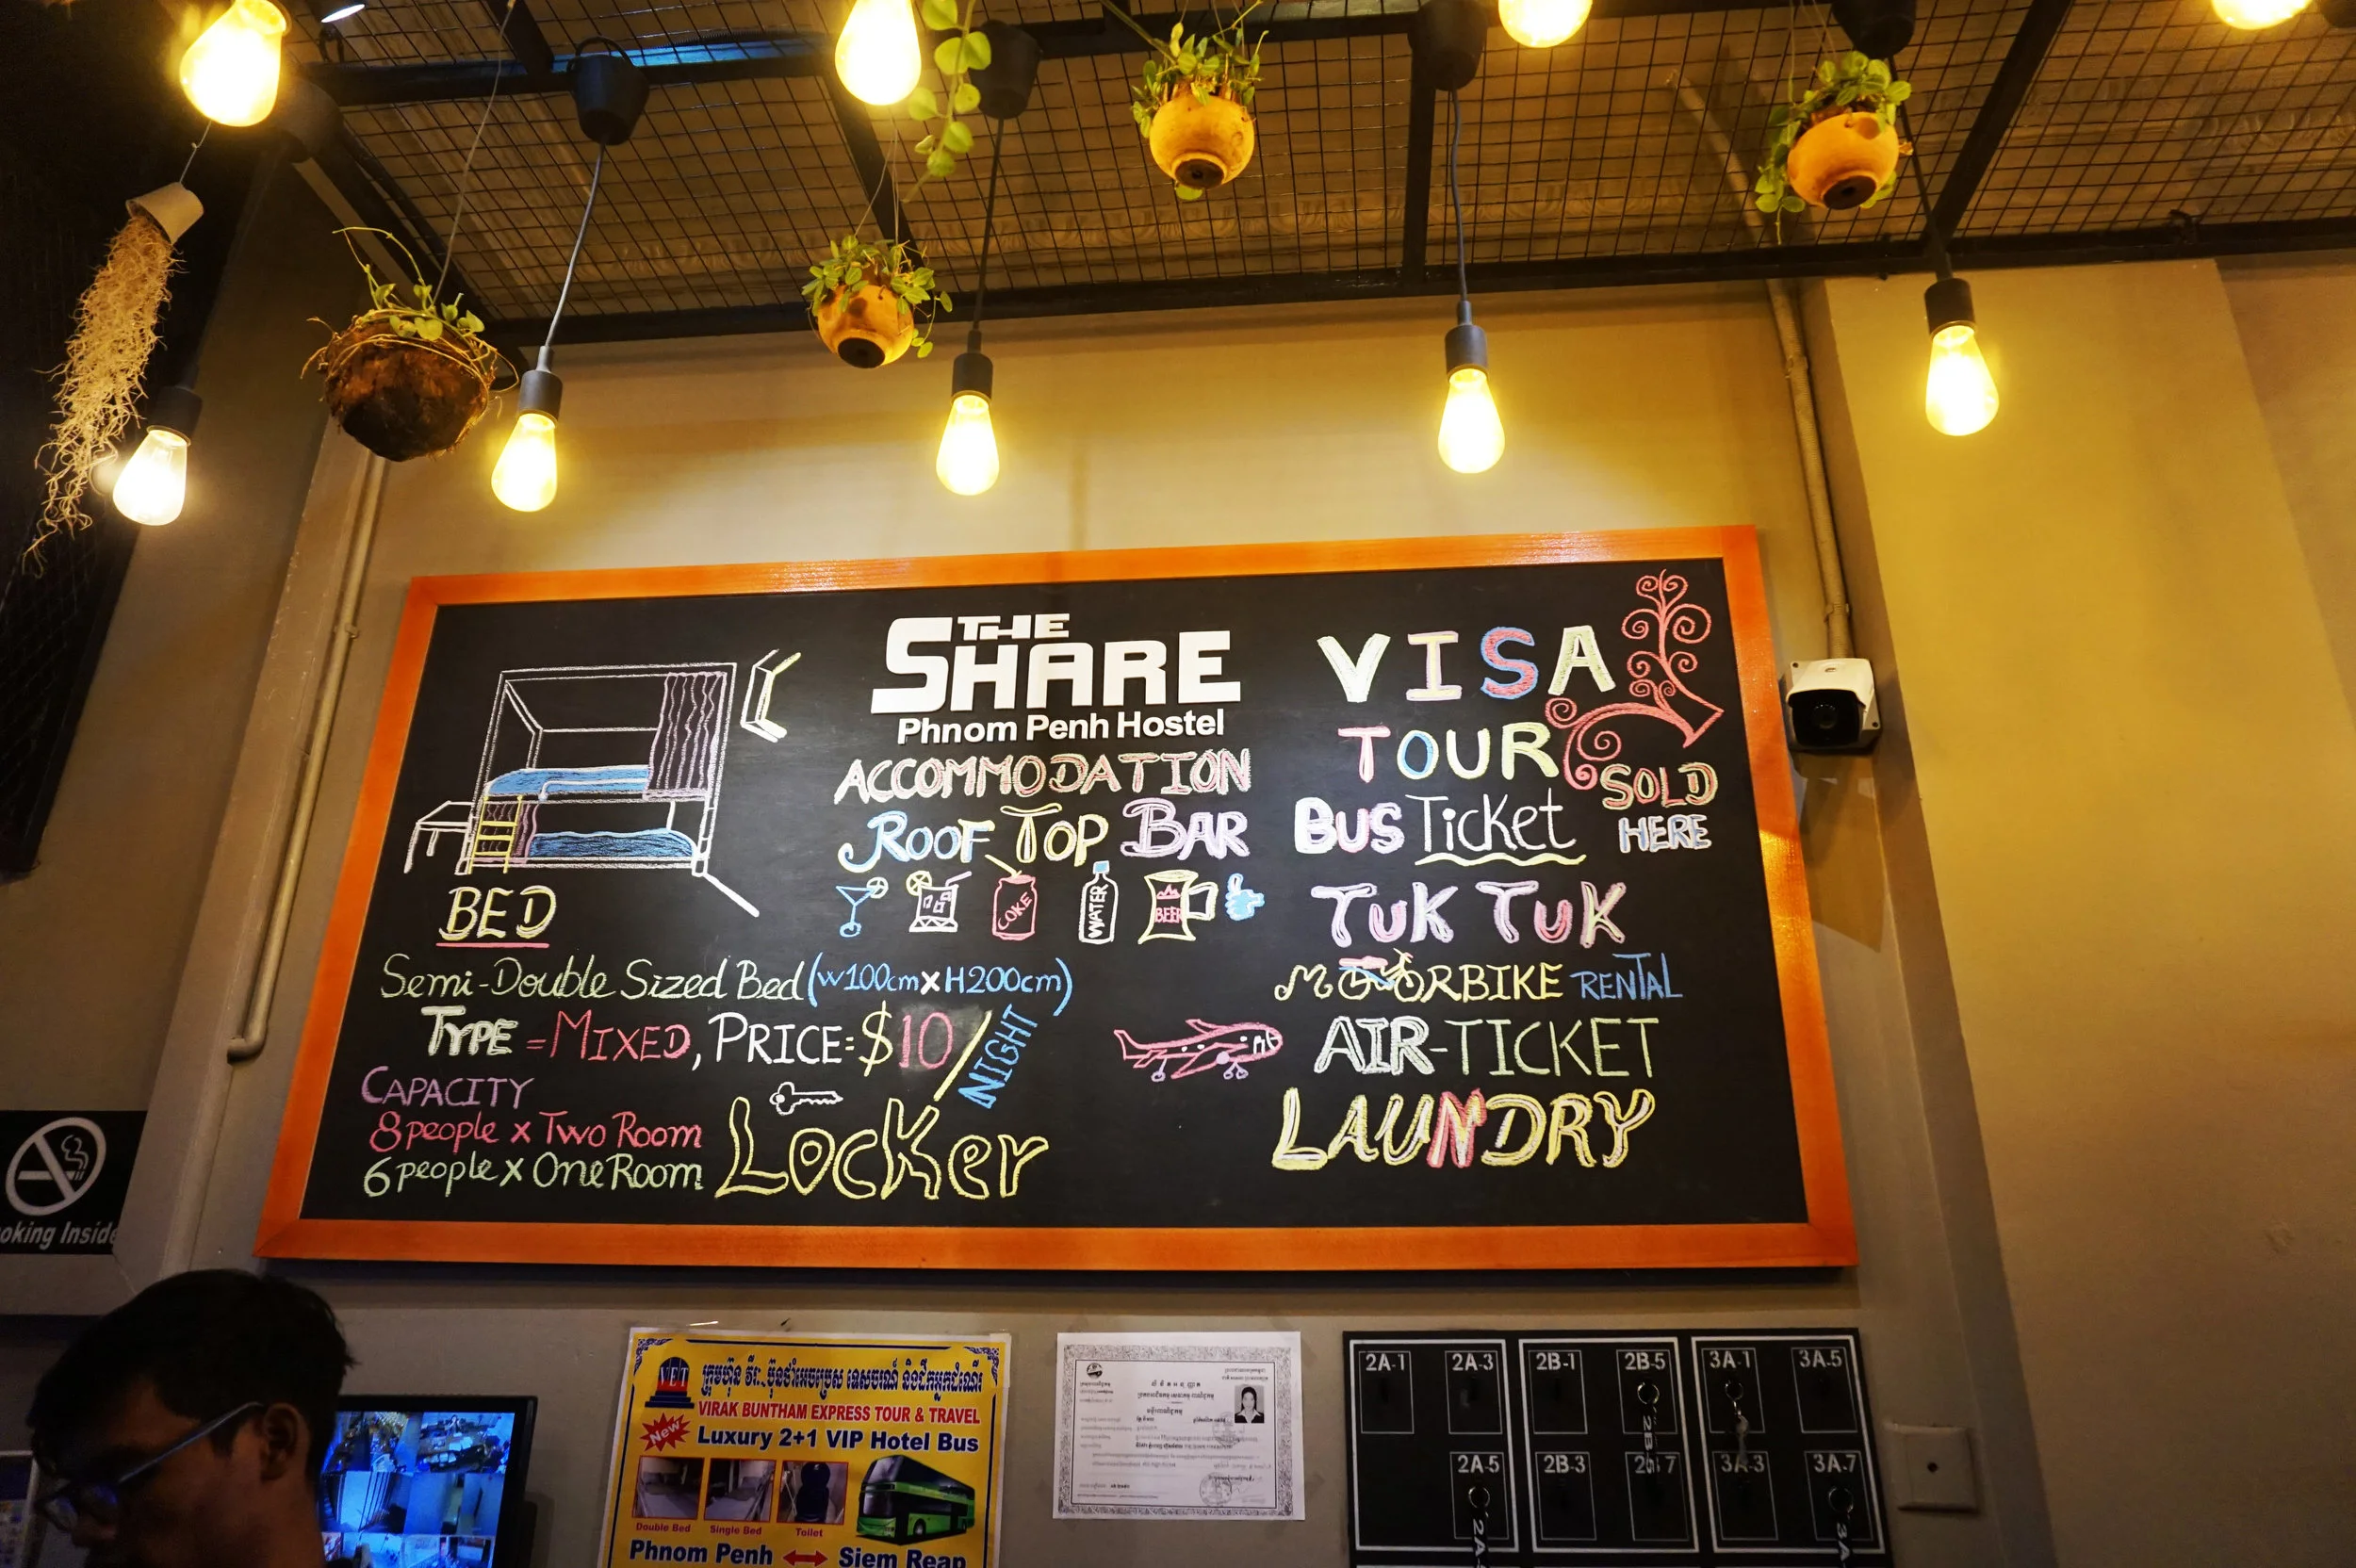 THE
SHARE
Phnom Penh Hostel
ACCOMMODATION
ROOF TOP BAR
COKE
WATER
BEER
BED
Semi-Double Sized Bed (W100cm x H200cm)
TYPE = MIXED, PRICE: $10/NIGHT
CAPACITY
8 people x Two Room
6 people x One Room
LOCKer
VISA
TOUR
BUS Ticket
SOLD
HERE
TUK TUK
MOTORBIKE RENTAL
AIR-TICKET
LAUNDRY
oking Inside
VET
VIRAK BUNTHAM EXPRESS TOUR & TRAVEL
New
Luxury 2+1 VIP Hotel Bus
Double Bed Single Bed Toilet
Phnom Penh ↔ Siem Reap
2A-1 2A-3 2B-1 2B-5 3A-1 3A-5
2A-5 2B-3 3A-3 3A-7